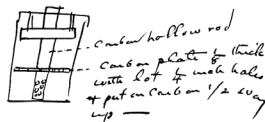 carbon hollow rod
carbon plate 1/8 thick
with lot 1/4 inch holes
& put on carbon 1/2 way
up —